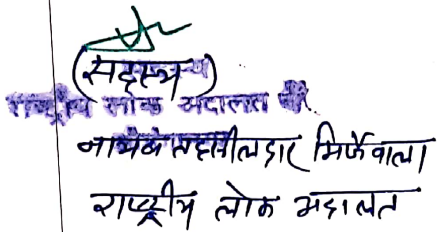 (सदस्य)
राष्ट्रीय लोक अदालत
नायब तहसीलदार मिर्जेवाला
राष्ट्रीय लोक अदालत